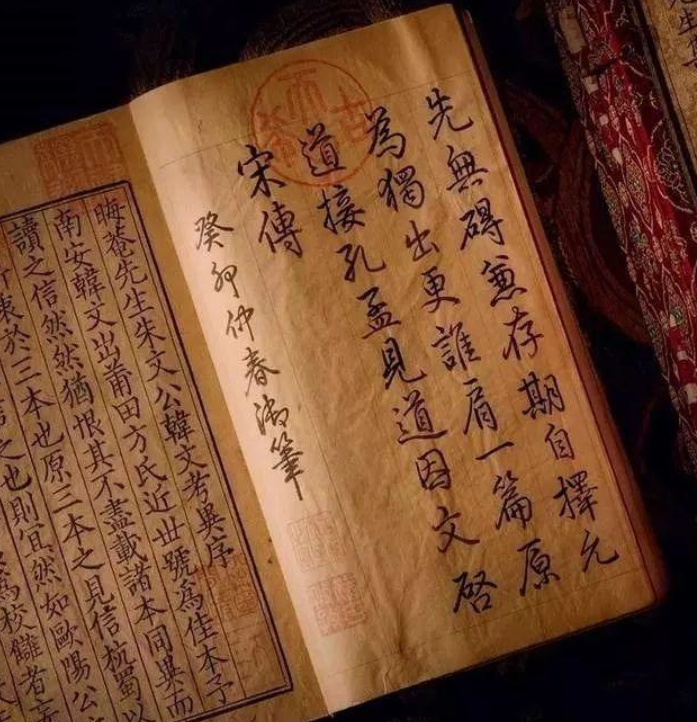 先無碍兼存期自擇允
為獨出更誰肩一篇原
道接孔孟見道因文啓
宋傳
癸卯仲春御筆
晦菴先生朱文公韓文考異序
南安韓文出莆田方氏近世號爲佳本予
讀之信然然猶恨其不盡載諸本同異而
於三本也原三本之見信杭蜀以
之也則宜然如歐陽公
爲校讎者妄